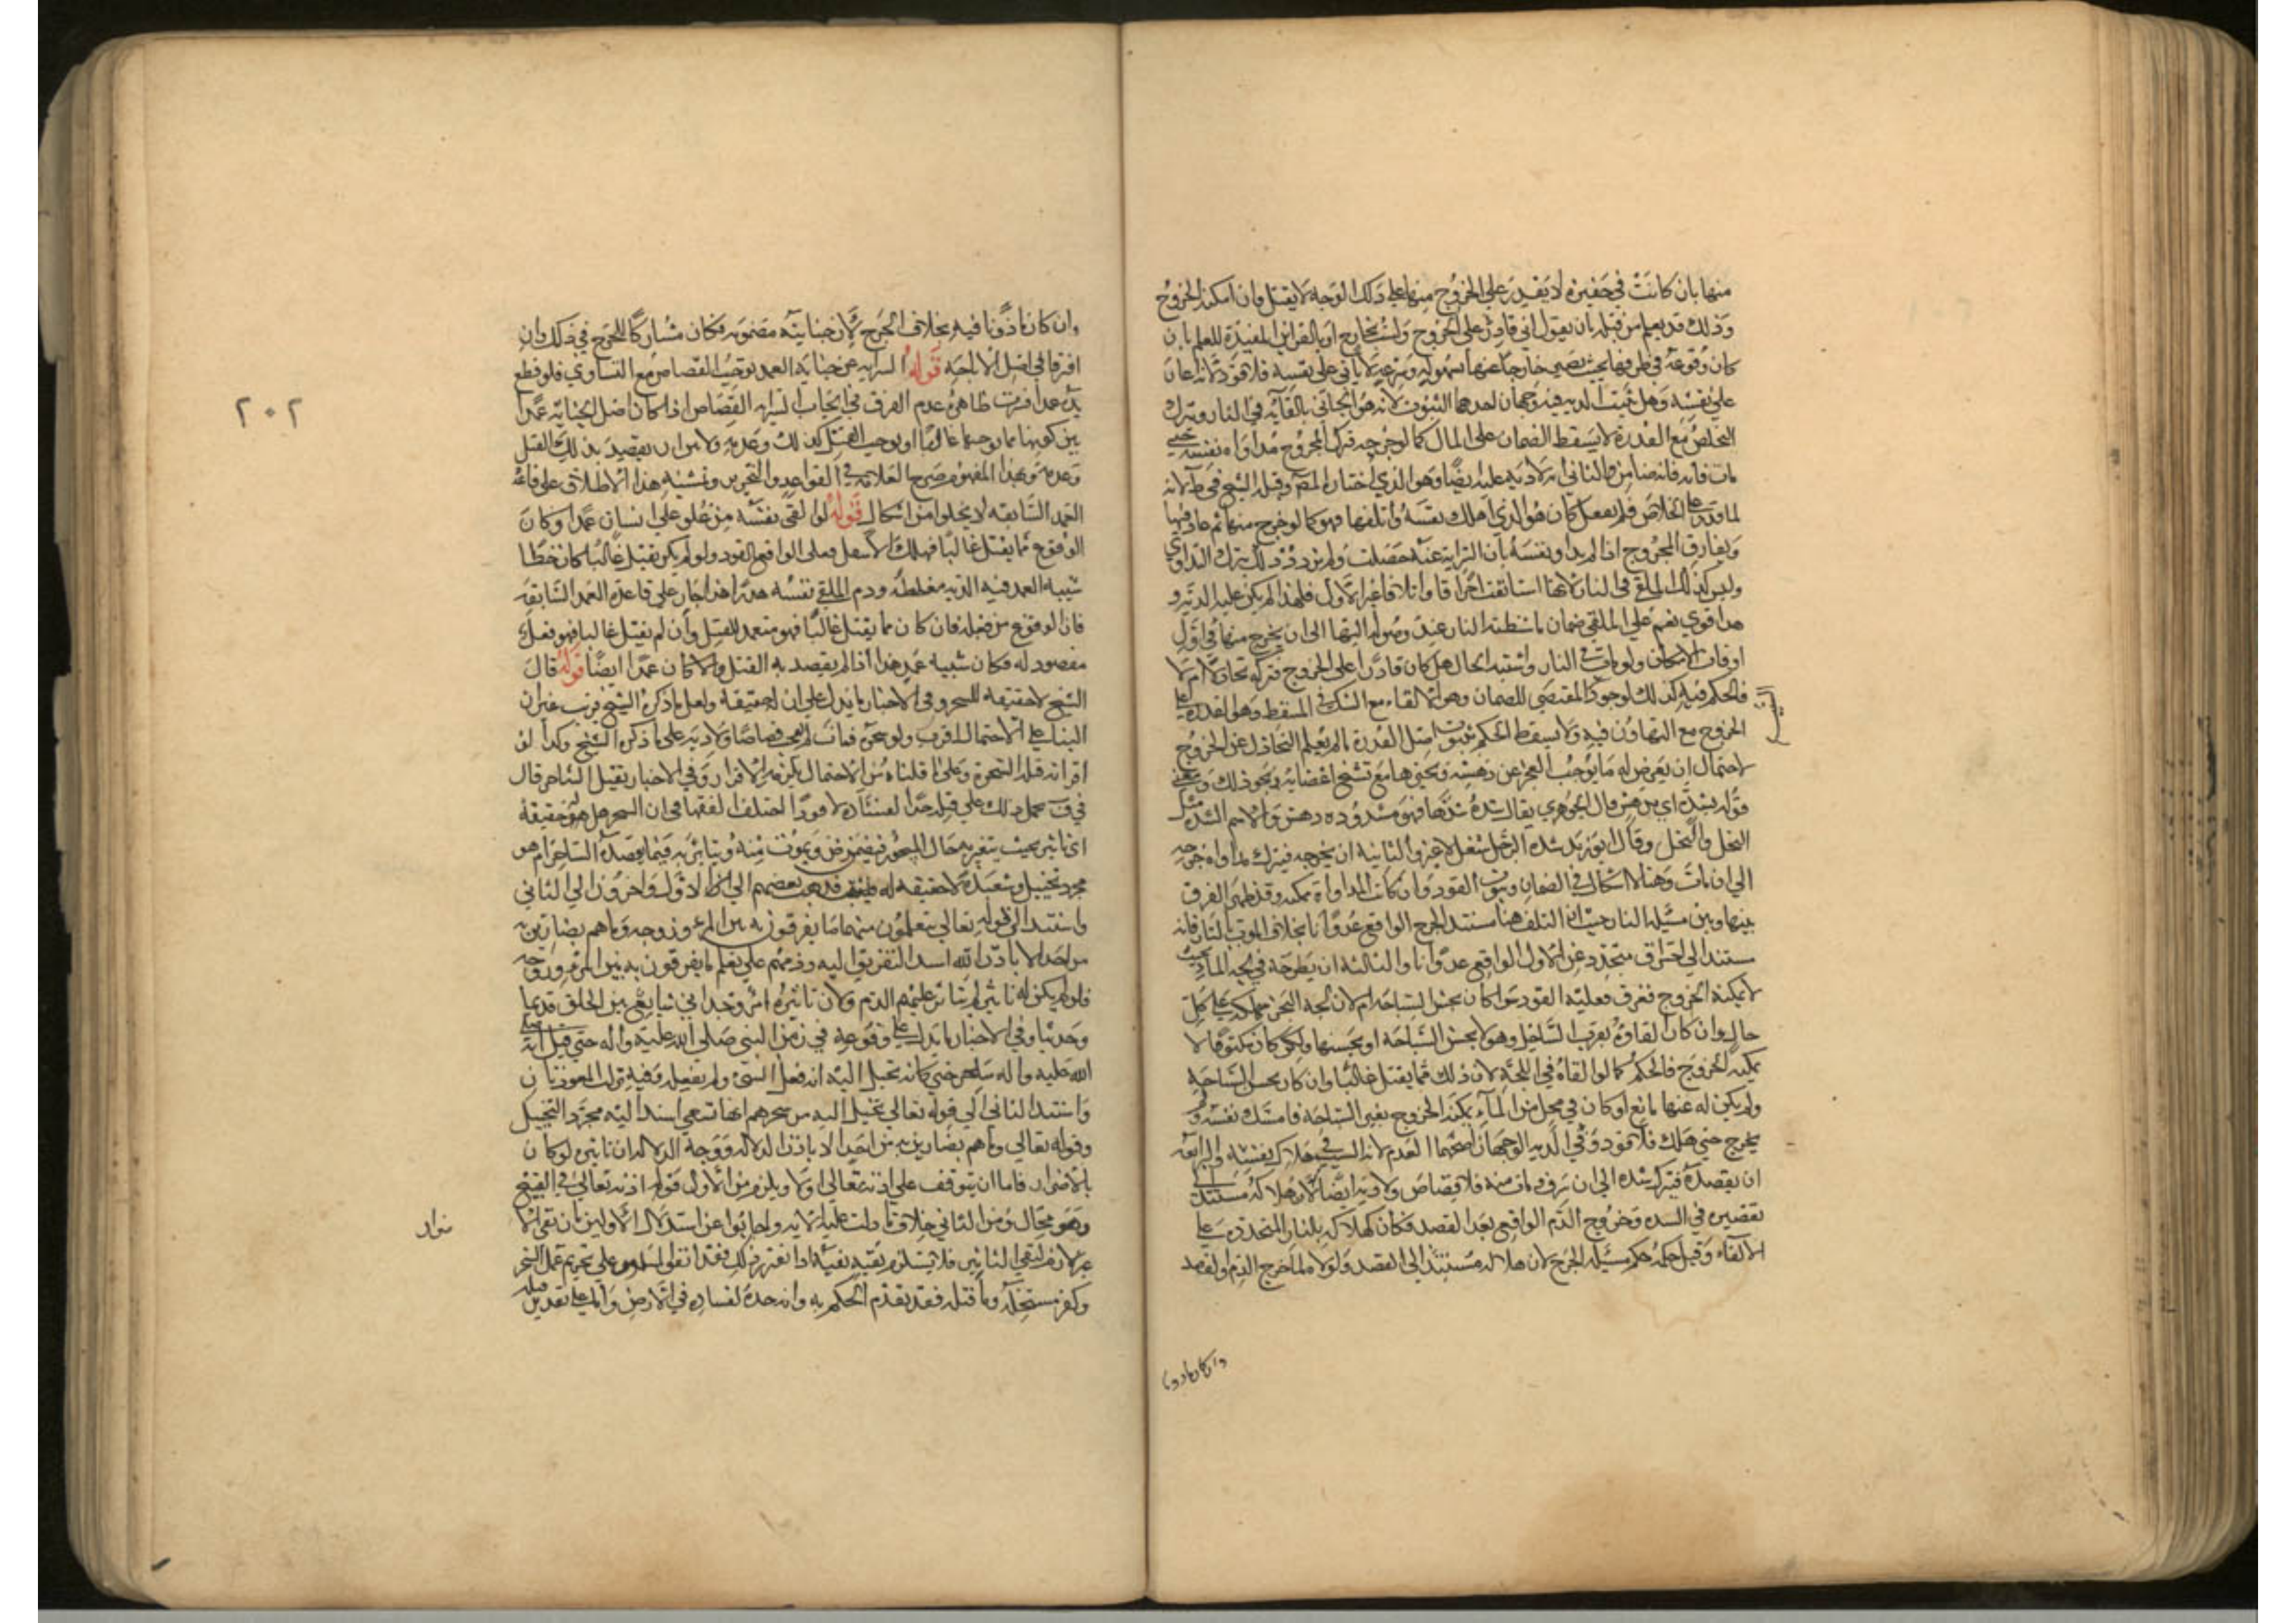 منها بان كانت في حفيرة لا يقدر على الخروج منها على ذلك الوجه لا يقتل وان امكنه الخروج
وذلك قد يعلم من قبله بان يقول اني قادر على الخروج ولست بخارج او بالقراين المفيدة للعلم بان
كان وقوعه في طرفها بحيث يصير خارجا عنها بسهوله وسرعه لا ياتي على نفسه فلا قود لانه اعان
على نفسه وهل تثبت الديه فيه وجهان احدهما الثبوت لانه هو الجاني بالقايه في النار وترك
التخلص مع القدرة لا يسقط الضمان على المال كما لو جرحه فترك المجروح مداواه نفسه حتى
مات فانه ضامن والثاني انه لا ديه عليه ايضا وهو الذي اختاره المص وقبله الشيخ في ط لانه
لما قدر على الخلاص فلم يفعل كان هو الذي اهلك نفسه واتلفها فهو كما لو خرج منها ثم عاد فيها
ويفارق المجروح اذا لم يداو نفسه بان السراية عنه حصلت ولم يزد ذلك بترك التداوي
وليس كذلك الملقى في النار لانها استانفت احراقا واتلافا غير الاول فلهذا لم يكن عليه الديه و
هذا قوي نعم على الملقي ضمان ما شيطته النار عند وصوله اليها الى ان يخرج منها في اول
اوقات الامكان ولو مات في النار واشتبه الحال هل كان قادرا على الخروج فتركه تخاذلا ام لا
فالحكم فيه كذلك لوجود المقتضي للضمان وهو الالقاء مع الشك في المسقط وهو القدرة على
الخروج مع التهاون فيه ولا يسقط الحكم بثبوت اصل القدرة ما لم يعلم التخاذل عن الخروج
لاحتمال ان يعرض له ما يوجب العجز عن دهشه وتحيز ها مع تشنج اعضايه ونحو ذلك ومعنى
قوله بشده اي بدهش قال الجوهري يقال شده شدها فهو مشدوه دهش والاسم الشده مثل
البخل والبخل وقال ابو زيد شده الرجل شغل لا غير والثانية ان يجرحه فيترك مداواة جرحه
الى ان مات وهنا لا اشكال في الضمان وثبوت القود وان كانت المداواة ممكنه وقد ظهر الفرق
بينها وبين مسئله النار حيث ان التلف هنا مستند الجرح الواقع عدوانا بخلاف الموت بالنار فانه
مستند الى احتراق متجدد عن الاول الواقع عدوانا والثالثة ان يطرحه في لجه الماء بحيث
لا يمكنه الخروج فغرق فعليه القود سوا كان يحسن السباحه ام لا لان لجة البحر مهلكه على كل
حال وان كان القاؤه بقرب الساحل وهو لا يحسن السباحة او يحسنها ولكن كان مكتوفا لا
يمكنه الخروج فالحكم كما لو القاه في اللجة لان ذلك مما يقتل غالبا وان كان يحسن السباحة
ولم يكن له عنها مانع او كان في محل من الماء يمكنه الخروج بغير السباحة فامسك نفسه ولم
يخرج حتى هلك فلا قود وفي الديه الوجهان اصحهما العدم لانه السبب في هلاك نفسه والرابعه
ان يفصده فيترك شده الى ان نزف ومات منه فلا قصاص ولا ديه ايضا لان هلاكه مستند الى
تقصيره في الشده وخروج الدم الواقع بعد الفصد فكان كهلاكه بالنار المتجدده على
الالقاء وقيل حكمه حكم مسئله الجرح لان هلاكه مستند الى الفصد ولولاه لما خرج الدم والفصد
وان كان ماذونا
٢٠٢
وان كان ماذونا فيه بخلاف الجرح لان جنايته مضمونه فكان مشاركا للجرح في ذلك وان
افترقا في اصل الاباحة قوله السرايه عن جنايه العمد توجب القصاص مع التساوي فلو قطع
يده عمدا فسرت ظاهره عدم الفرق في ايجاب السرايه القصاص اذا كان اصل الجنايه عمدا
بين كونها مما يوجبها غالبا او يوجب القتل كذلك وعدمه ولا بين ان يقصد بذلك القتل
وعدمه وبهذا المفهوم صرح العلامه في القواعد والتحرير وتمشيه هذا الاطلاق على قاعدة
العمد السابقه لا يخلوا من اشكال قوله لو القى نفسه من علو على انسان عمدا وكان
الوقوع مما يقتل غالبا فهلك الاسفل فعلى الواقع القود ولو لم يكن يقتل غالبا كان خطا
شبيه العمد فيه الديه مغلظه ودم الملقي نفسه هدر هذا جار على قاعدة العمد السابقه
فان الوقوع من قبله فان كان مما يقتل غالبا فهو متعمد للقتل وان لم يقتل غالبا فهو فعل
مقصود له فكان شبيه عمد هذا اذا لم يقصد به القتل والا كان عمدا ايضا قوله قال
الشيخ لا حقيقة للسحر وفي الاخبار ما يدل على ان له حقيقة ولعل ما ذكره الشيخ قريب غير ان
البناء على الاحتمال اقرب ولو سحره فمات لم يوجب قصاصا ولا ديه على ما ذكره الشيخ وكذا لو
اقر انه قتله بسحره وعلى ما قلناه من الاحتمال يلزمه الاقرار وفي الاخبار يقتل الساحر قال
في ف يحمل ذلك على قتله حدا لفساده لا قودا اختلف الفقها في ان السحر هل له حقيقة
اي تاثير بحيث يتغير به حال المسحور فيمرض ويموت منه ويتاثر به فيما يقصده الساحر ام هو
مجرد تخييل وشعبذه لا حقيقه له فذهب بعضهم الى الاول واخرون الى الثاني
واستند الى قوله تعالى يتعلمون منهما ما يفرقون به بين المرء وزوجه وما هم بضارين به
من احد الا باذن الله اسند التفريق اليه وذمهم على تعلم ما يفرقون به بين المرء وزوجه
فلو لم يكن له تاثير لم يتاثر عليهم الذم ولان تاثيره امر وجداني شايع بين الخلق قديما
وحديثا وفي الاخبار ما يدل على وقوعه في زمن النبي صلى الله عليه واله حتى قيل انه صلى
الله عليه واله سحر حتى كان يخيل اليه انه فعل الشيء ولم يفعله وفيه نزلت المعوذتان
واستند الثاني الى قوله تعالى يخيل اليه من سحرهم انها تسعى اسند اليه مجرد التخييل
وقوله تعالى وما هم بضارين به من احد الا باذن الله ووجه الدلاله ان تاثيره لو كان
بالاضرار فاما ان يتوقف على اذنه تعالى او لا ويلزم من الاول قوله اذنه تعالى في القبيح
وهو محال ومن الثاني خلاف ما دلت عليه الايه واجابوا عن استدلال الاولين بان نفي
غير لازم لنفي التاثير فلا يستلزم نفيه نفيه اذا تقرر ذلك فقد اتفق المسلمون على تحريم عمل السحر
وكفر مستحله وما قتله فقد تقدم الحكم به وانه حده لفساده في الارض والمتن على تقدير